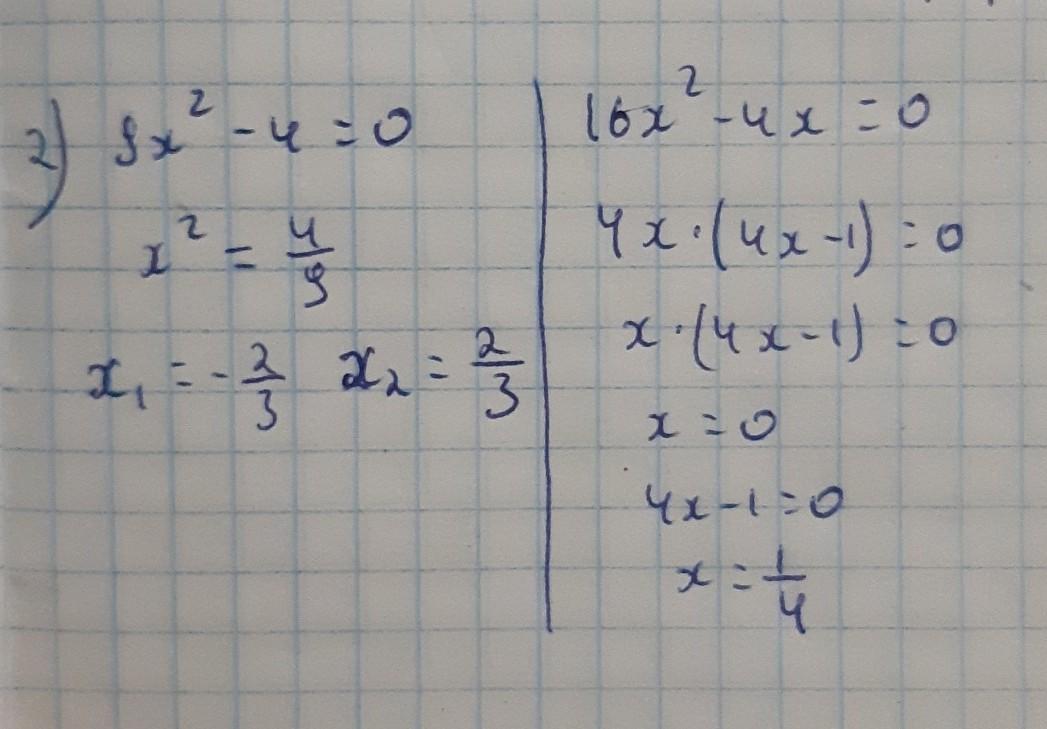 2) 9x² - 4 = 0
x² = 4/9
x₁ = -2/3 x₂ = 2/3
16x² - 4x = 0
4x · (4x - 1) = 0
x · (4x - 1) = 0
x = 0
4x - 1 = 0
x = 1/4